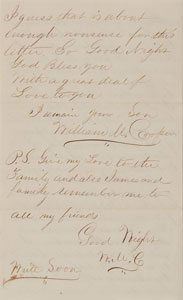 I guess that is about
enough nonsense for this
letter. So Good Night
God Bless you
With a great deal of
Love to you
I remain your Son
William M. Cooper
P.S. Give my Love to the
Family and also James and
family remember me to
all my friends
Good Night
W.M.C
Write Soon